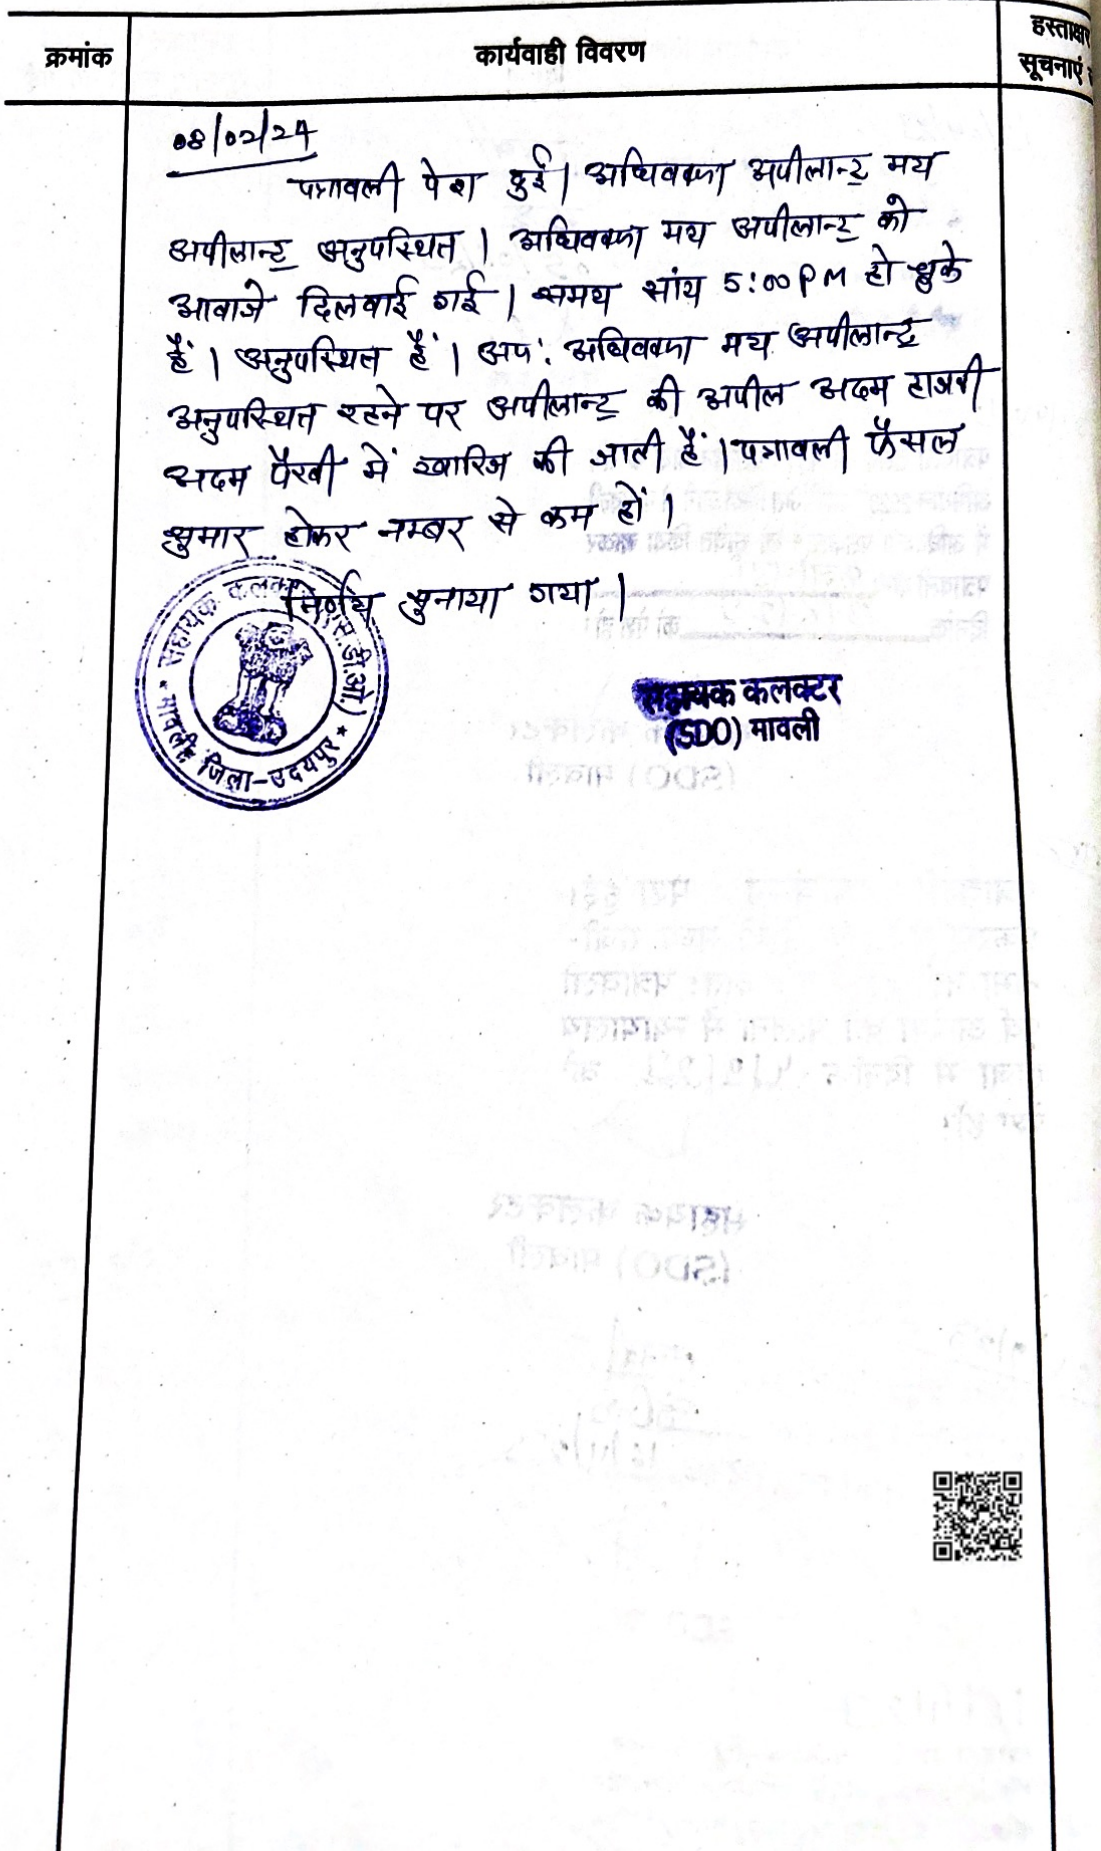 क्रमांक
कार्यवाही विवरण
हस्ताक्षर
सूचनाएं
08/02/24
पत्रावली पेश हुई। अधिवक्ता अपीलान्ट मय
अपीलान्ट अनुपस्थित। अधिवक्ता मय अपीलान्ट को
आवाजे दिलवाई गई। समय सांय 5:00 PM हो चुके
हैं। अनुपस्थित हैं। अत: अधिवक्ता मय अपीलान्ट
अनुपस्थित रहने पर अपीलान्ट की अपील अदम हाजरी
अदम पैरवी में खारिज की जाती हैं। पत्रावली फैसल
शुमार होकर नम्बर से कम हों।
निर्णय सुनाया गया।
सहायक कलक्टर
(SDO) मावली
सहायक कलक्टर एस.डी.ओ.)
मावली, जिला-उदयपुर